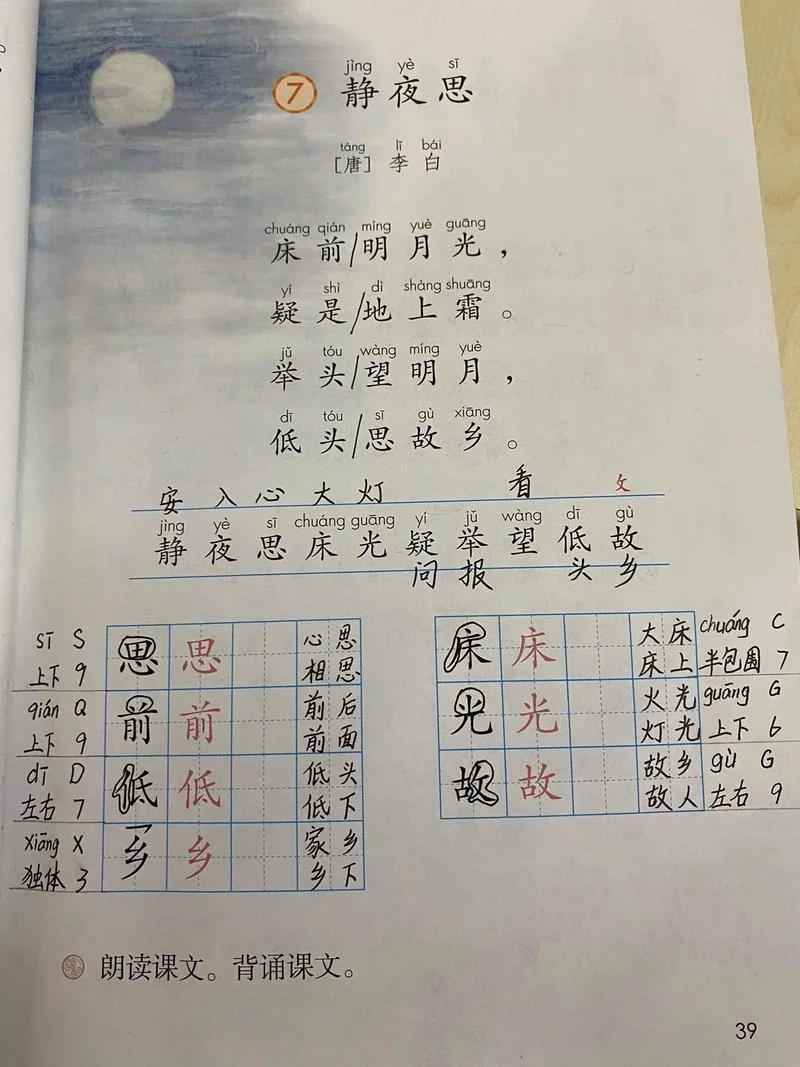 jìng yè sī
7 静夜思
táng lǐ bái
[唐] 李白
chuáng qián míng yuè guāng
床前/明月光，
yí shì dì shàng shuāng
疑是/地上霜。
jǔ tóu wàng míng yuè
举头/望明月，
dī tóu sī gù xiāng
低头/思故乡。
安 入 心 大 灯 看 攵
jìng yè sī chuáng guāng yí jǔ wàng dī gù
静 夜 思 床 光 疑 举 望 低 故
问 报 头 乡
sī S 思 思 心思
上下 9 相思
qián Q 前 前 前后
上下 9 前面
dī D 低 低 低头
左右 7 低下
xiāng X 乡 乡 家乡
独体 3 乡下
床 床 大床 chuáng C
床上 半包围 7
光 光 火光 guāng G
灯光 上下 6
故 故 故乡 gù G
故人 左右 9
朗读课文。背诵课文。
39